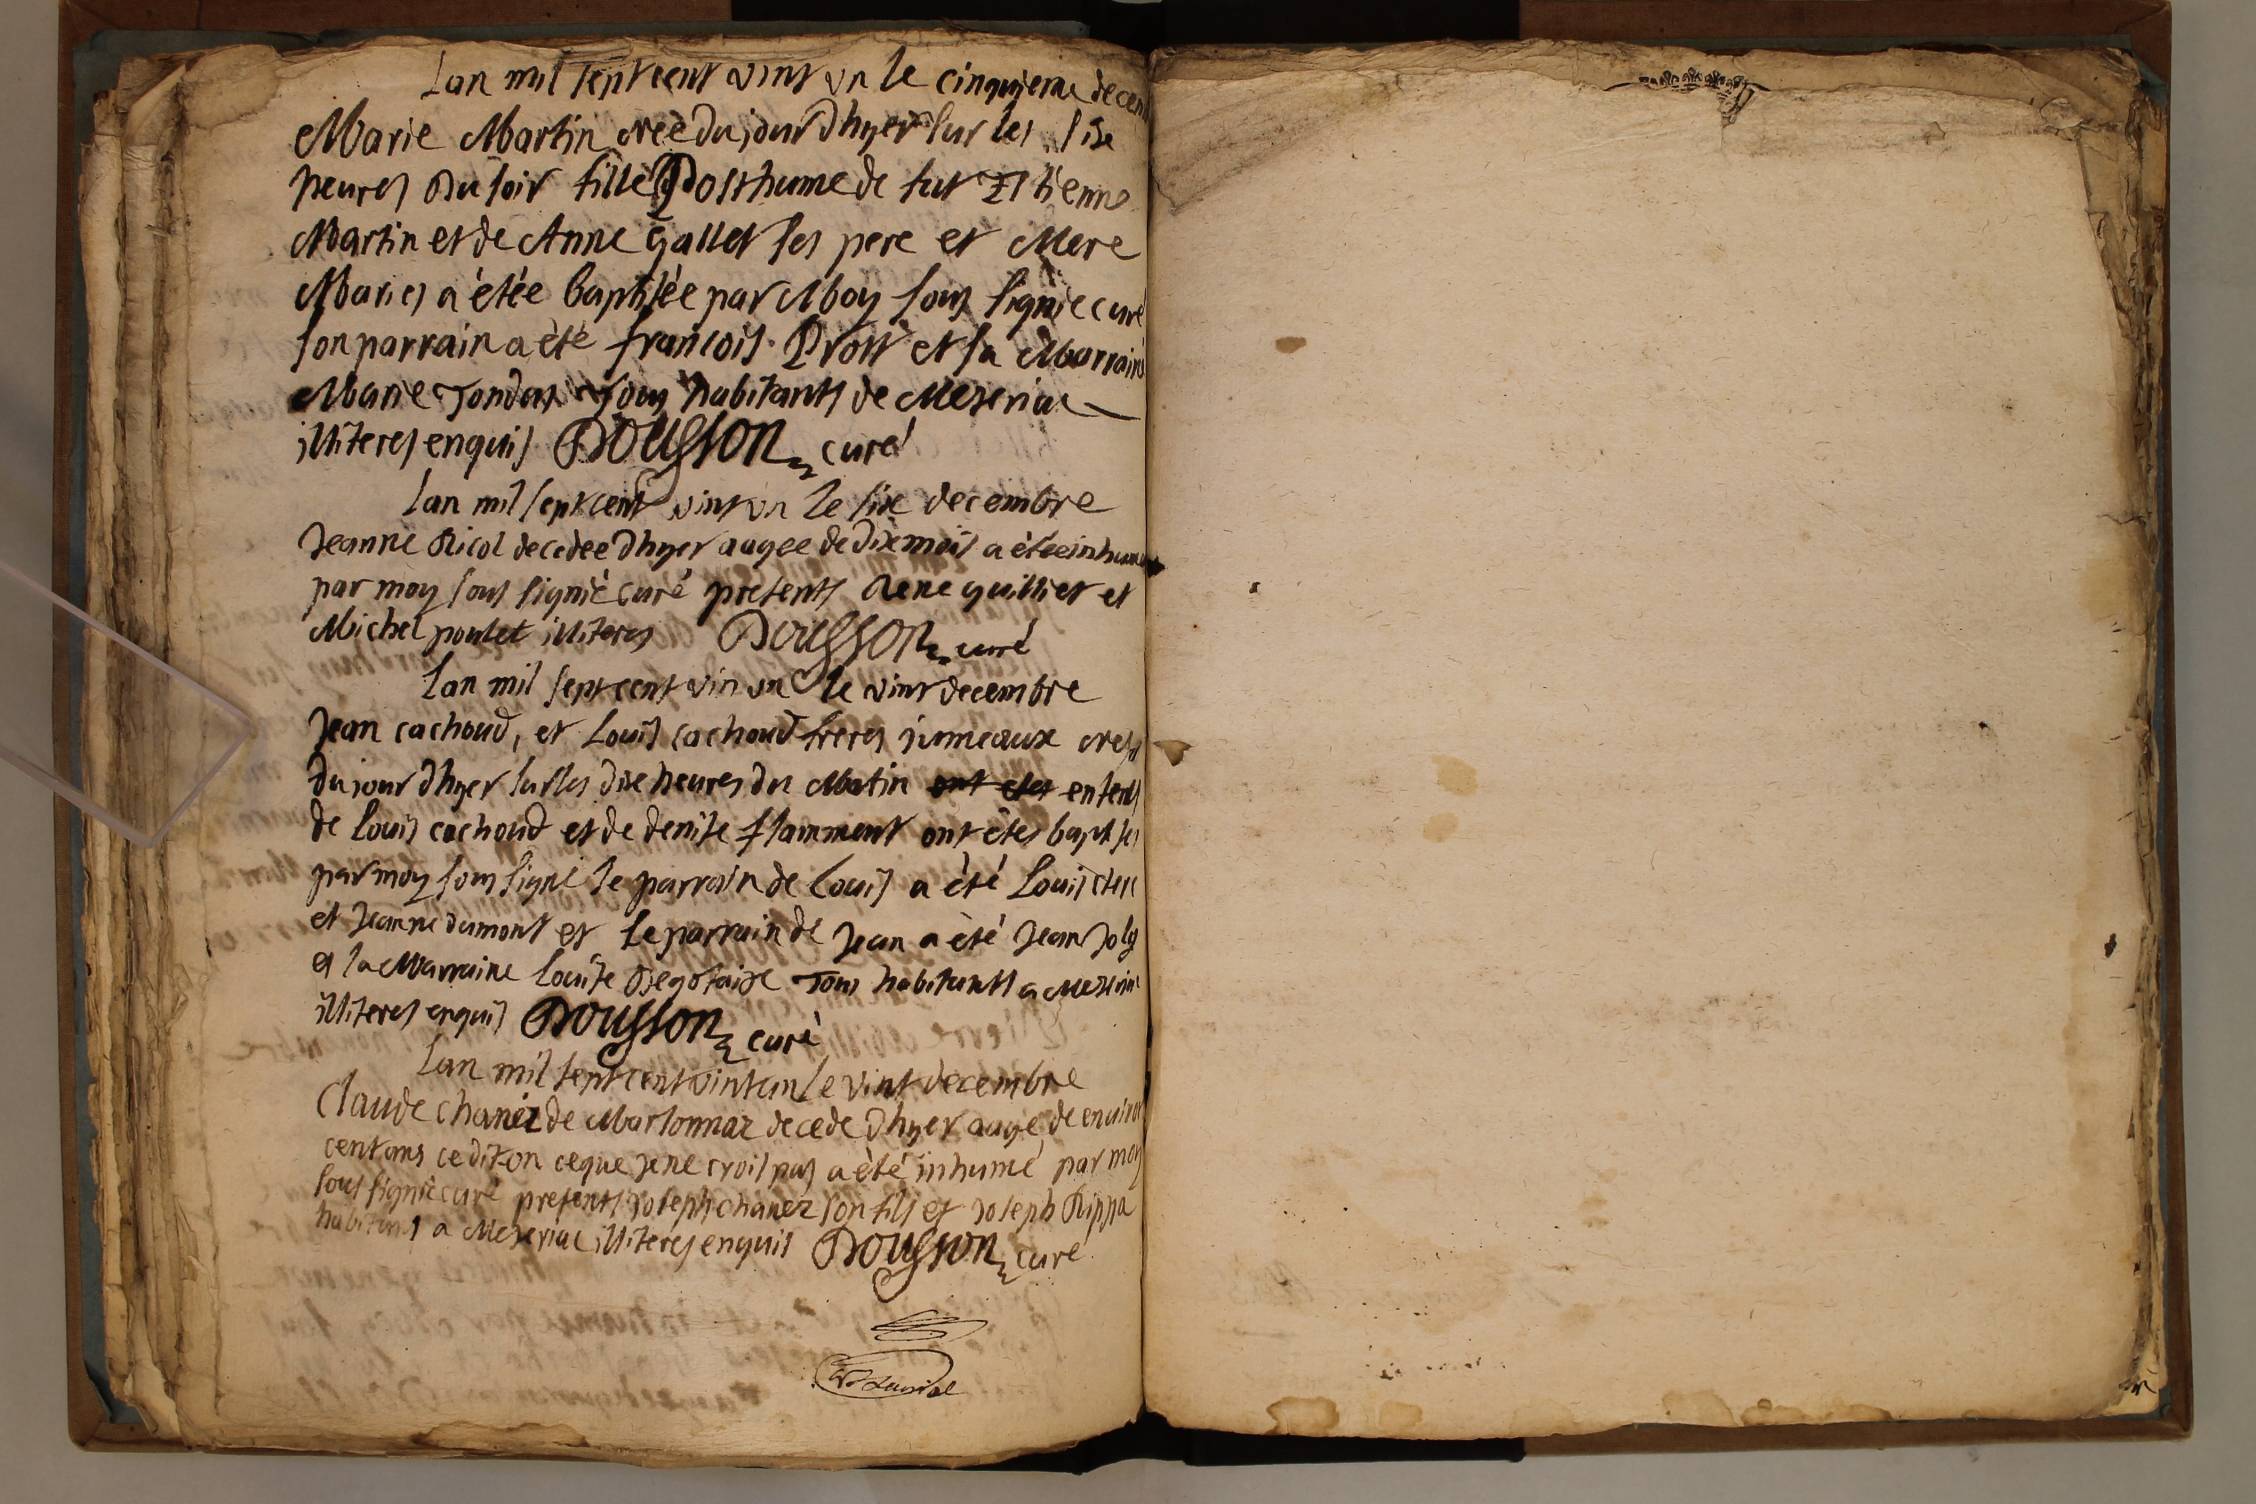 Lan mil sept cent vint vn le cinquieme decem
Marie Martin nee du jour dhyer sur les six
heures du soir fille Posthume de fut Etienne
Martin et de Anne gallet ses pere et Mere
Maries a étée baptisée par Moy sous signié curé
son parrain a été francois Prost et sa Marraine
Marie tous habitants de Meseriac
illiteres enquis Dousson curé
Lan mil sept cent vint vn le six decembre
Jeanne Ricol decedee dhyer augee de dix mois a étée inhumée
par moy sous signié curé presents Rene guilliet et
Michel poulet illiteres Dousson curé
Lan mil sept cent vin vn le vint decembre
Jean cachoud, et Louis cachoud freres jumeaux nes
du jour dhyer sur les dix heures du Matin ont etes enfents
de Louis cachoud et de denise flamment ont étes baptises
par moy sous signé le parrain de Louis a été Louis
et Jeanne dumont et le parrain de Jean a été Jean Joly
et la Marraine Louise tous habitants a Meseriac
illiteres enquis Dousson curé
Lan mil sept cent vint un le vint decembre
Claude chanez de Marsonnaz decede dhyer augé de enuiron
cent ans ce dit on ce que je ne crois pas a été inhumé par moy
sous signié curé presents Joseph chanez son fils et Joseph Rippa
habitants a Meseriac illiteres enquis Dousson curé